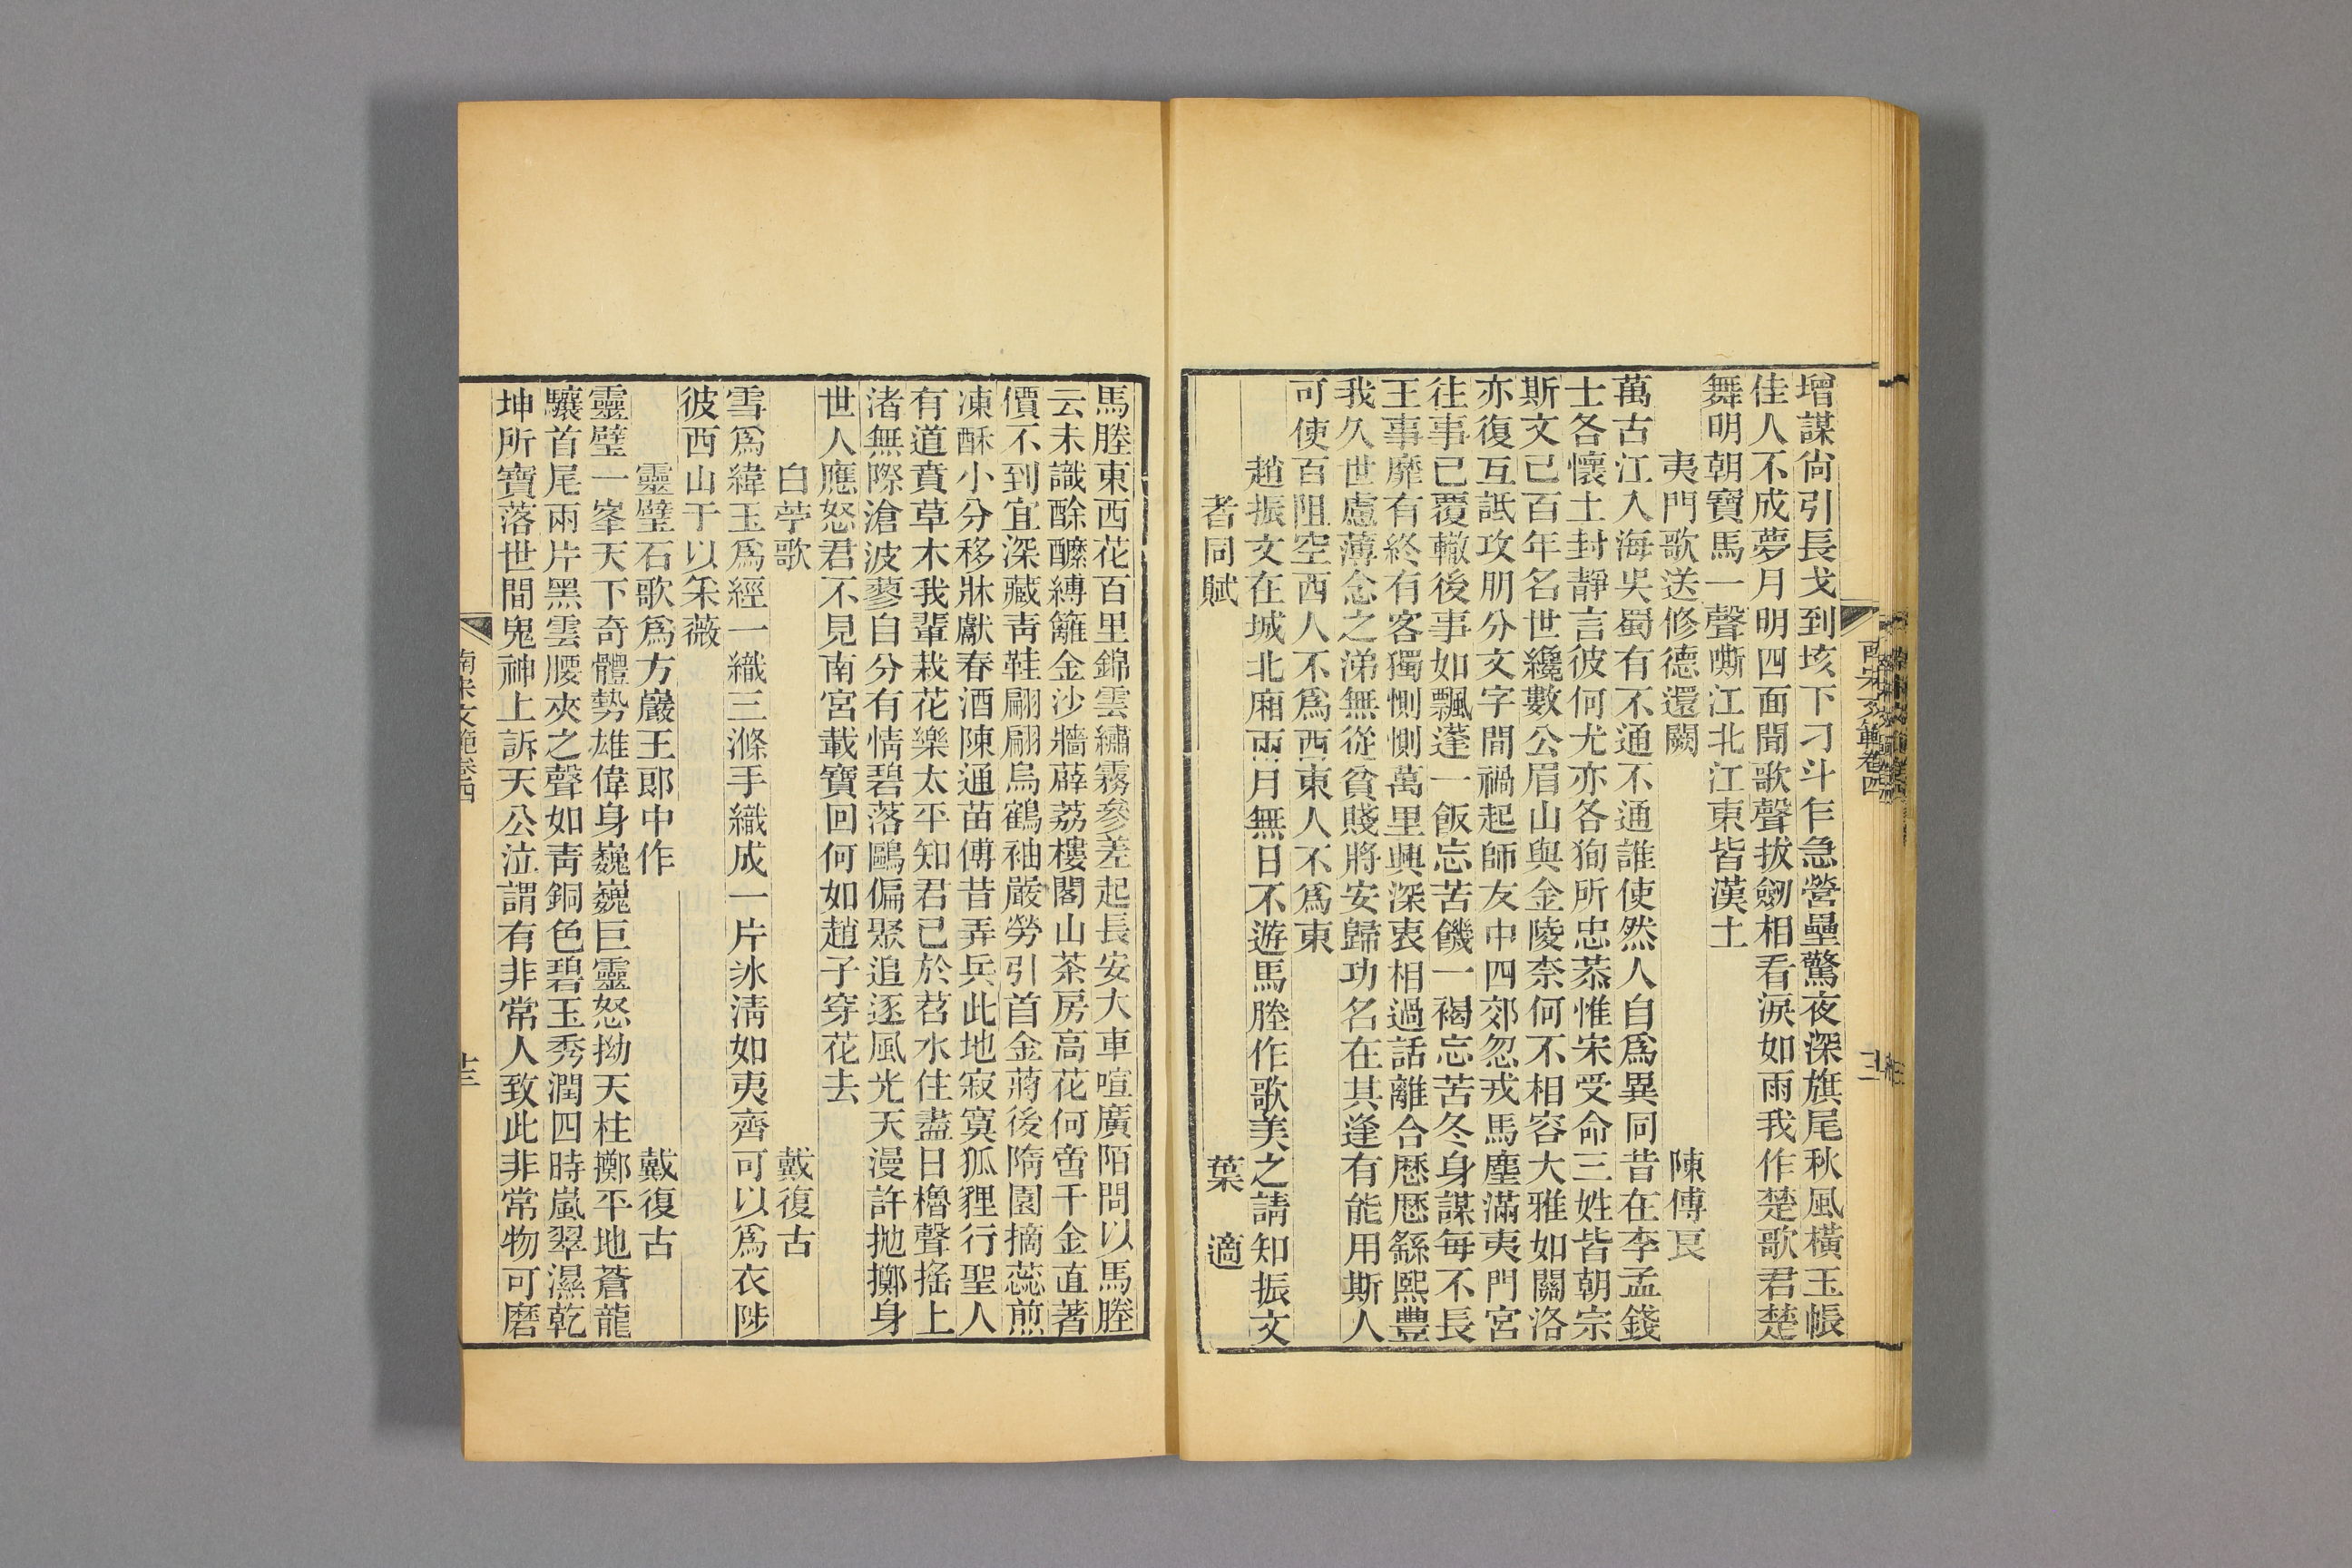 增謀尙引長戈到垓下刁斗乍急營壘驚夜深旗尾秋風橫玉帳
佳人不成夢月明四面聞歌聲拔劒相看淚如雨我作楚歌君楚
舞明朝寶馬一聲嘶江北江東皆漢土
夷門歌送修德還闕 陳傅良
萬古江入海吳蜀有不通不通誰使然人自爲異同昔在李孟錢
士各懷土封靜言彼何尤亦各狥所忠恭惟宋受命三姓皆朝宗
斯文已百年名世纔數公眉山與金陵柰何不相容大雅如關洛
亦復互詆攻朋分文字間禍起師友中四郊忽戎馬塵滿夷門宮
往事已覆轍後事如飄蓬一飯忘苦饑一褐忘苦冬身謀每不長
王事靡有終有客獨惻惻萬里興深衷相過話離合歷歷繇熙豐
我久世慮薄念之涕無從貧賤將安歸功名在其逢有能用斯人
可使百阻空西人不爲西東人不爲東
趙振文在城北廂兩月無日不遊馬塍作歌美之請知振文
者同賦 葉適
馬塍東西花百里錦雲繡霧參差起長安大車喧廣陌問以馬塍
云未識酴醾縳籬金沙牆薜荔樓閣山茶房高花何啻千金直著
價不到宜深藏靑鞋翩翩烏鶴袖嚴勞引首金蔣後隋園摘蕊煎
凍酥小分移牀獻春酒陳通苗傅昔弄兵此地寂寞狐狸行聖人
有道賁草木我輩栽花樂太平知君已於苕水住盡日櫓聲搖上
渚無際滄波蓼自分有情碧落鷗偏聚追逐風光天漫許拋擲身
世人應怒君不見南宮載寶回何如趙子穿花去
白苧歌 戴復古
雪爲緯玉爲經一織三滌手織成一片氷淸如夷齊可以爲衣陟
彼西山于以采薇
靈璧石歌爲方巖王郎中作 戴復古
靈璧一峯天下奇體勢雄偉身巍巍巨靈怒拗天柱擲平地蒼龍
驤首尾兩片黑雲腰夾之聲如靑銅色碧玉秀潤四時嵐翠濕乾
坤所寶落世間鬼神上訴天公泣謂有非常人致此非常物可磨
南宋文範卷四
十三